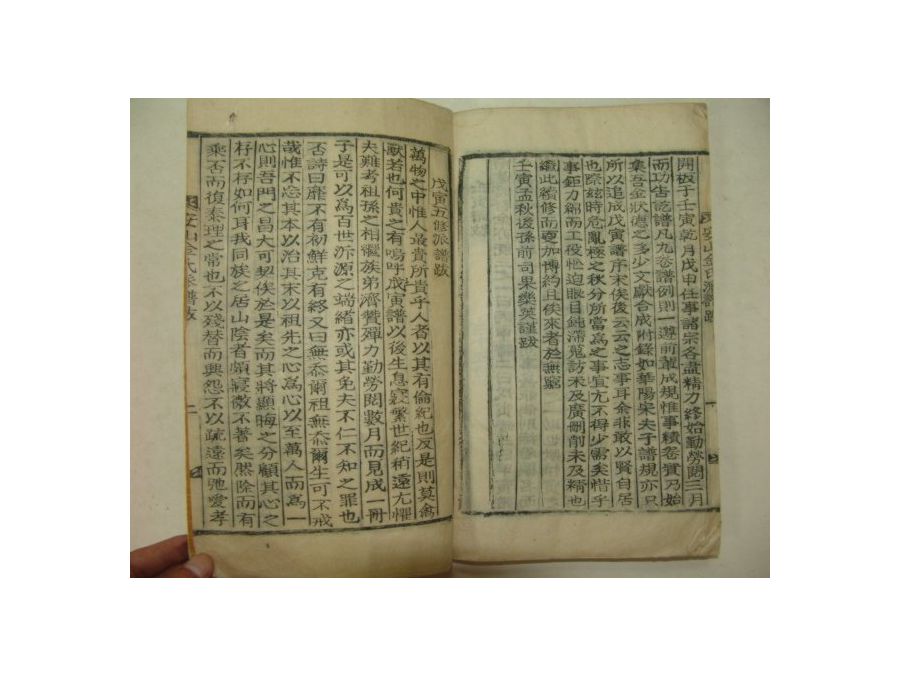 安山金氏派譜跋
開板于壬寅乾月戊申任事諸宗各盡精力終始勤勞閱三月
而功告訖譜凡九卷譜例則一遵前轍成規惟事績卷實乃始
集吾金狀德之多少文獻合成附錄如華陽宋夫子譜規亦只
所以追成戊寅譜序末俟後云云之志事耳余非敢以賢自居
也際玆時危亂極之秋分所當為之事宜尤不得少需矣惜乎
事鉅力綿而工役悤迫眼目鈍滯蒐訪未及廣刪削未及精也
繼此續修而更加博約且俟來者於無窮
壬寅孟秋後孫前司果樂英謹跋
戊寅五修派譜跋
萬物之中惟人最貴所貴乎人者以其有倫紀也反是則莫禽
獸若也何貴之有嗚呼戊寅譜以後生息寢繁世紀稍遠尤懼
夫難考祖孫之相繼族弟濟賛殫力勤勞閱數月而見成一冊
子是可以為百世派源之端緒亦或其免夫不仁不知之罪也
否詩曰靡不有初鮮克有終又曰無忝爾祖無忝爾生可不戒
哉惟不忘其本以治其末以祖先之心為心以至萬人而為一
心則吾門之昌大可契俟於是矣而其將顯晦之分顧其心之
存不存如何耳我同族之居山陰者頗寢微不著矣然除而有
乘否而復泰理之常也不以殘替而興怨不以疏遠而弛愛孝
安山金氏派譜跋 二